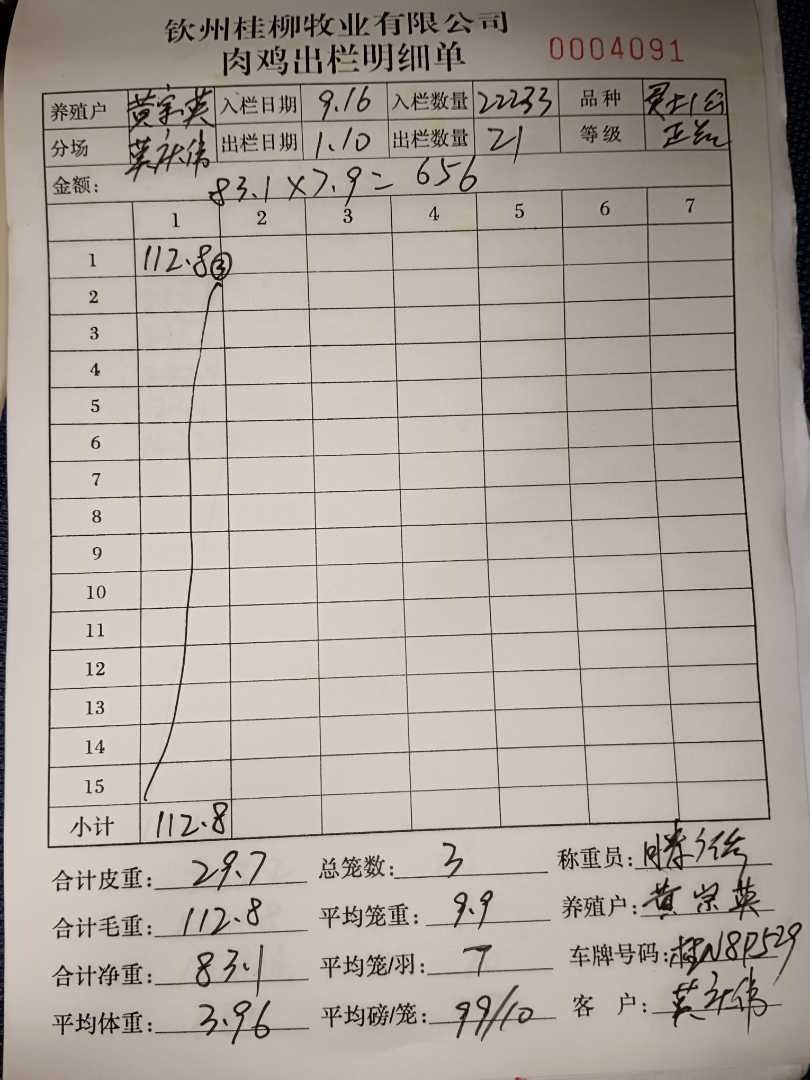 钦州桂柳牧业有限公司
肉鸡出栏明细单 0004091
养殖户 黄宗英 入栏日期 9.16 入栏数量 22233 品种
分场 莫庆伟 出栏日期 1.10 出栏数量 21 等级
金额: 83.1×7.9=656
1 2 3 4 5 6 7
1 112.8③
2
3
4
5
6
7
8
9
10
11
12
13
14
15
小计 112.8
合计皮重: 29.7 总笼数: 3 称重员:
合计毛重: 112.8 平均笼重: 9.9 养殖户: 黄宗英
合计净重: 83.1 平均笼/羽: 7 车牌号码: 桂N8P529
平均体重: 3.96 平均磅/笼: 99/10 客户: 莫庆伟